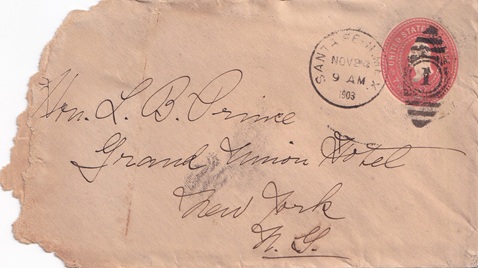 SANTA FE, N. MEX.
NOV 23
9 AM
1903
UNITED STATES
1
Hon. L. B. Prince
Grand Union Hotel
New York
N. Y.